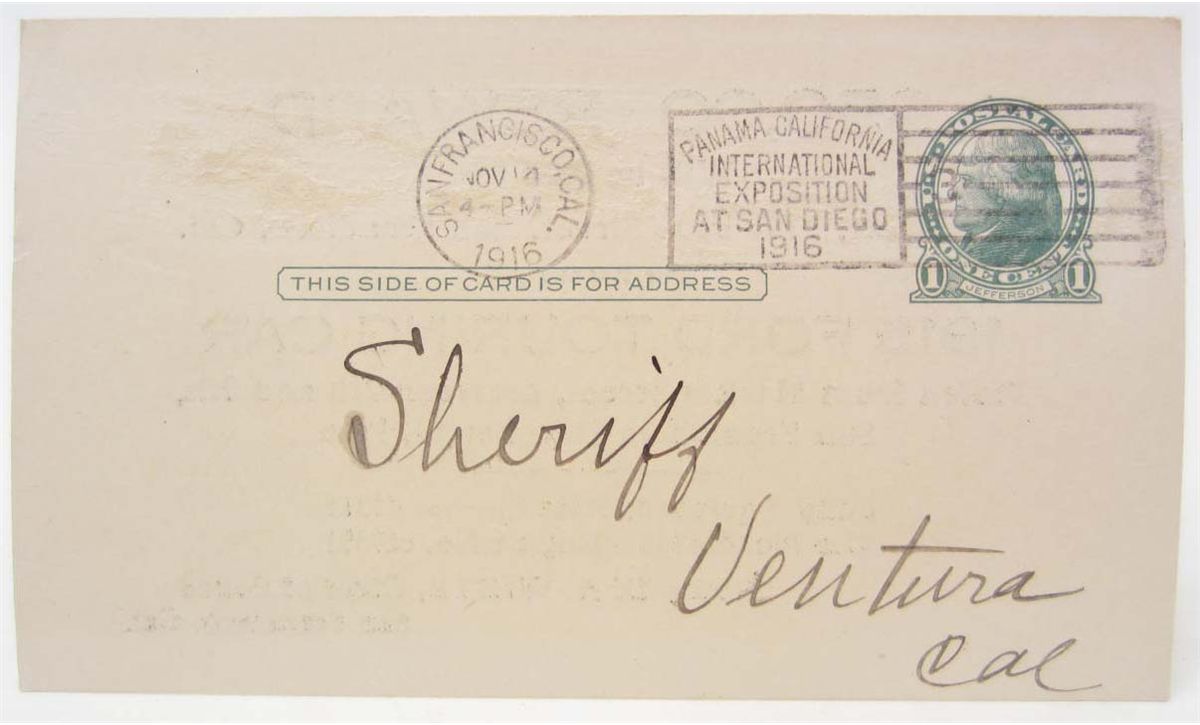 SAN FRANCISCO, CAL.
NOV 14
4-PM
1916
PANAMA CALIFORNIA
INTERNATIONAL
EXPOSITION
AT SAN DIEGO
1916
U.S. POSTAL CARD
ONE CENT
1 JEFFERSON 1
THIS SIDE OF CARD IS FOR ADDRESS
Sheriff
Ventura
Cal